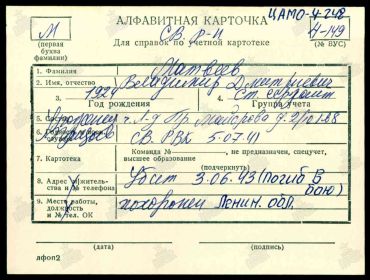 ЦАМО-4-248
М
(первая
буква
фамилии)
АЛФАВИТНАЯ КАРТОЧКА
СВ. Р-Н
Для справок по учетной картотеке
4-149
(№ ВУС)
1. Фамилия Матвеев
2. Имя, отчество Владимир Дмитриевич
3. 1924 4. Ст. сержант
Год рождения Группа учета
5. Состав г. Л-д Пр.
СВ. РВК 5.07.41
7. Картотека Команда № , не предназначен, спецучет,
высшее образование
(подчеркнуть)
8. Адрес жительства и № телефона Убит 3.06.43 (Погиб в бою)
9. Место работы, должность и № тел. ОК похоронен Ленин. обл.
(дата) (подпись)
лфоп2